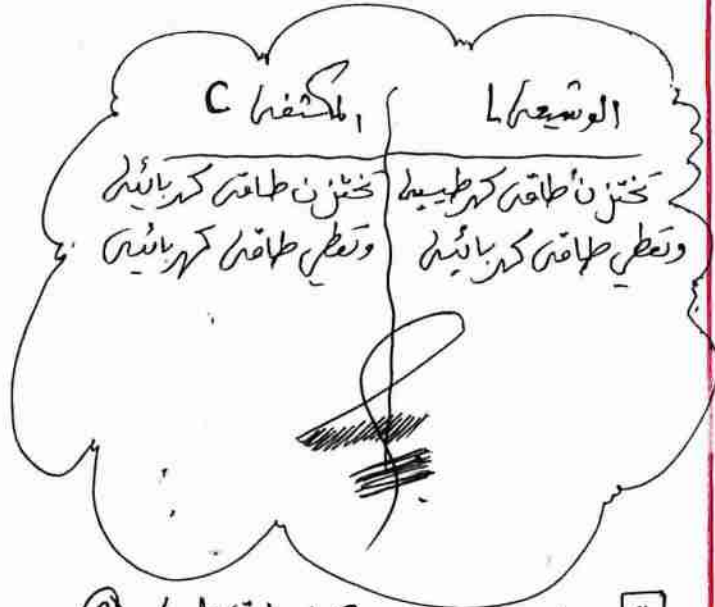 الوشيعة L المكثفة C
تختزن طاقة كهرطيسية تختزن طاقة كهربائية
وتعطي طاقة كهربائية وتعطي طاقة كهربائية